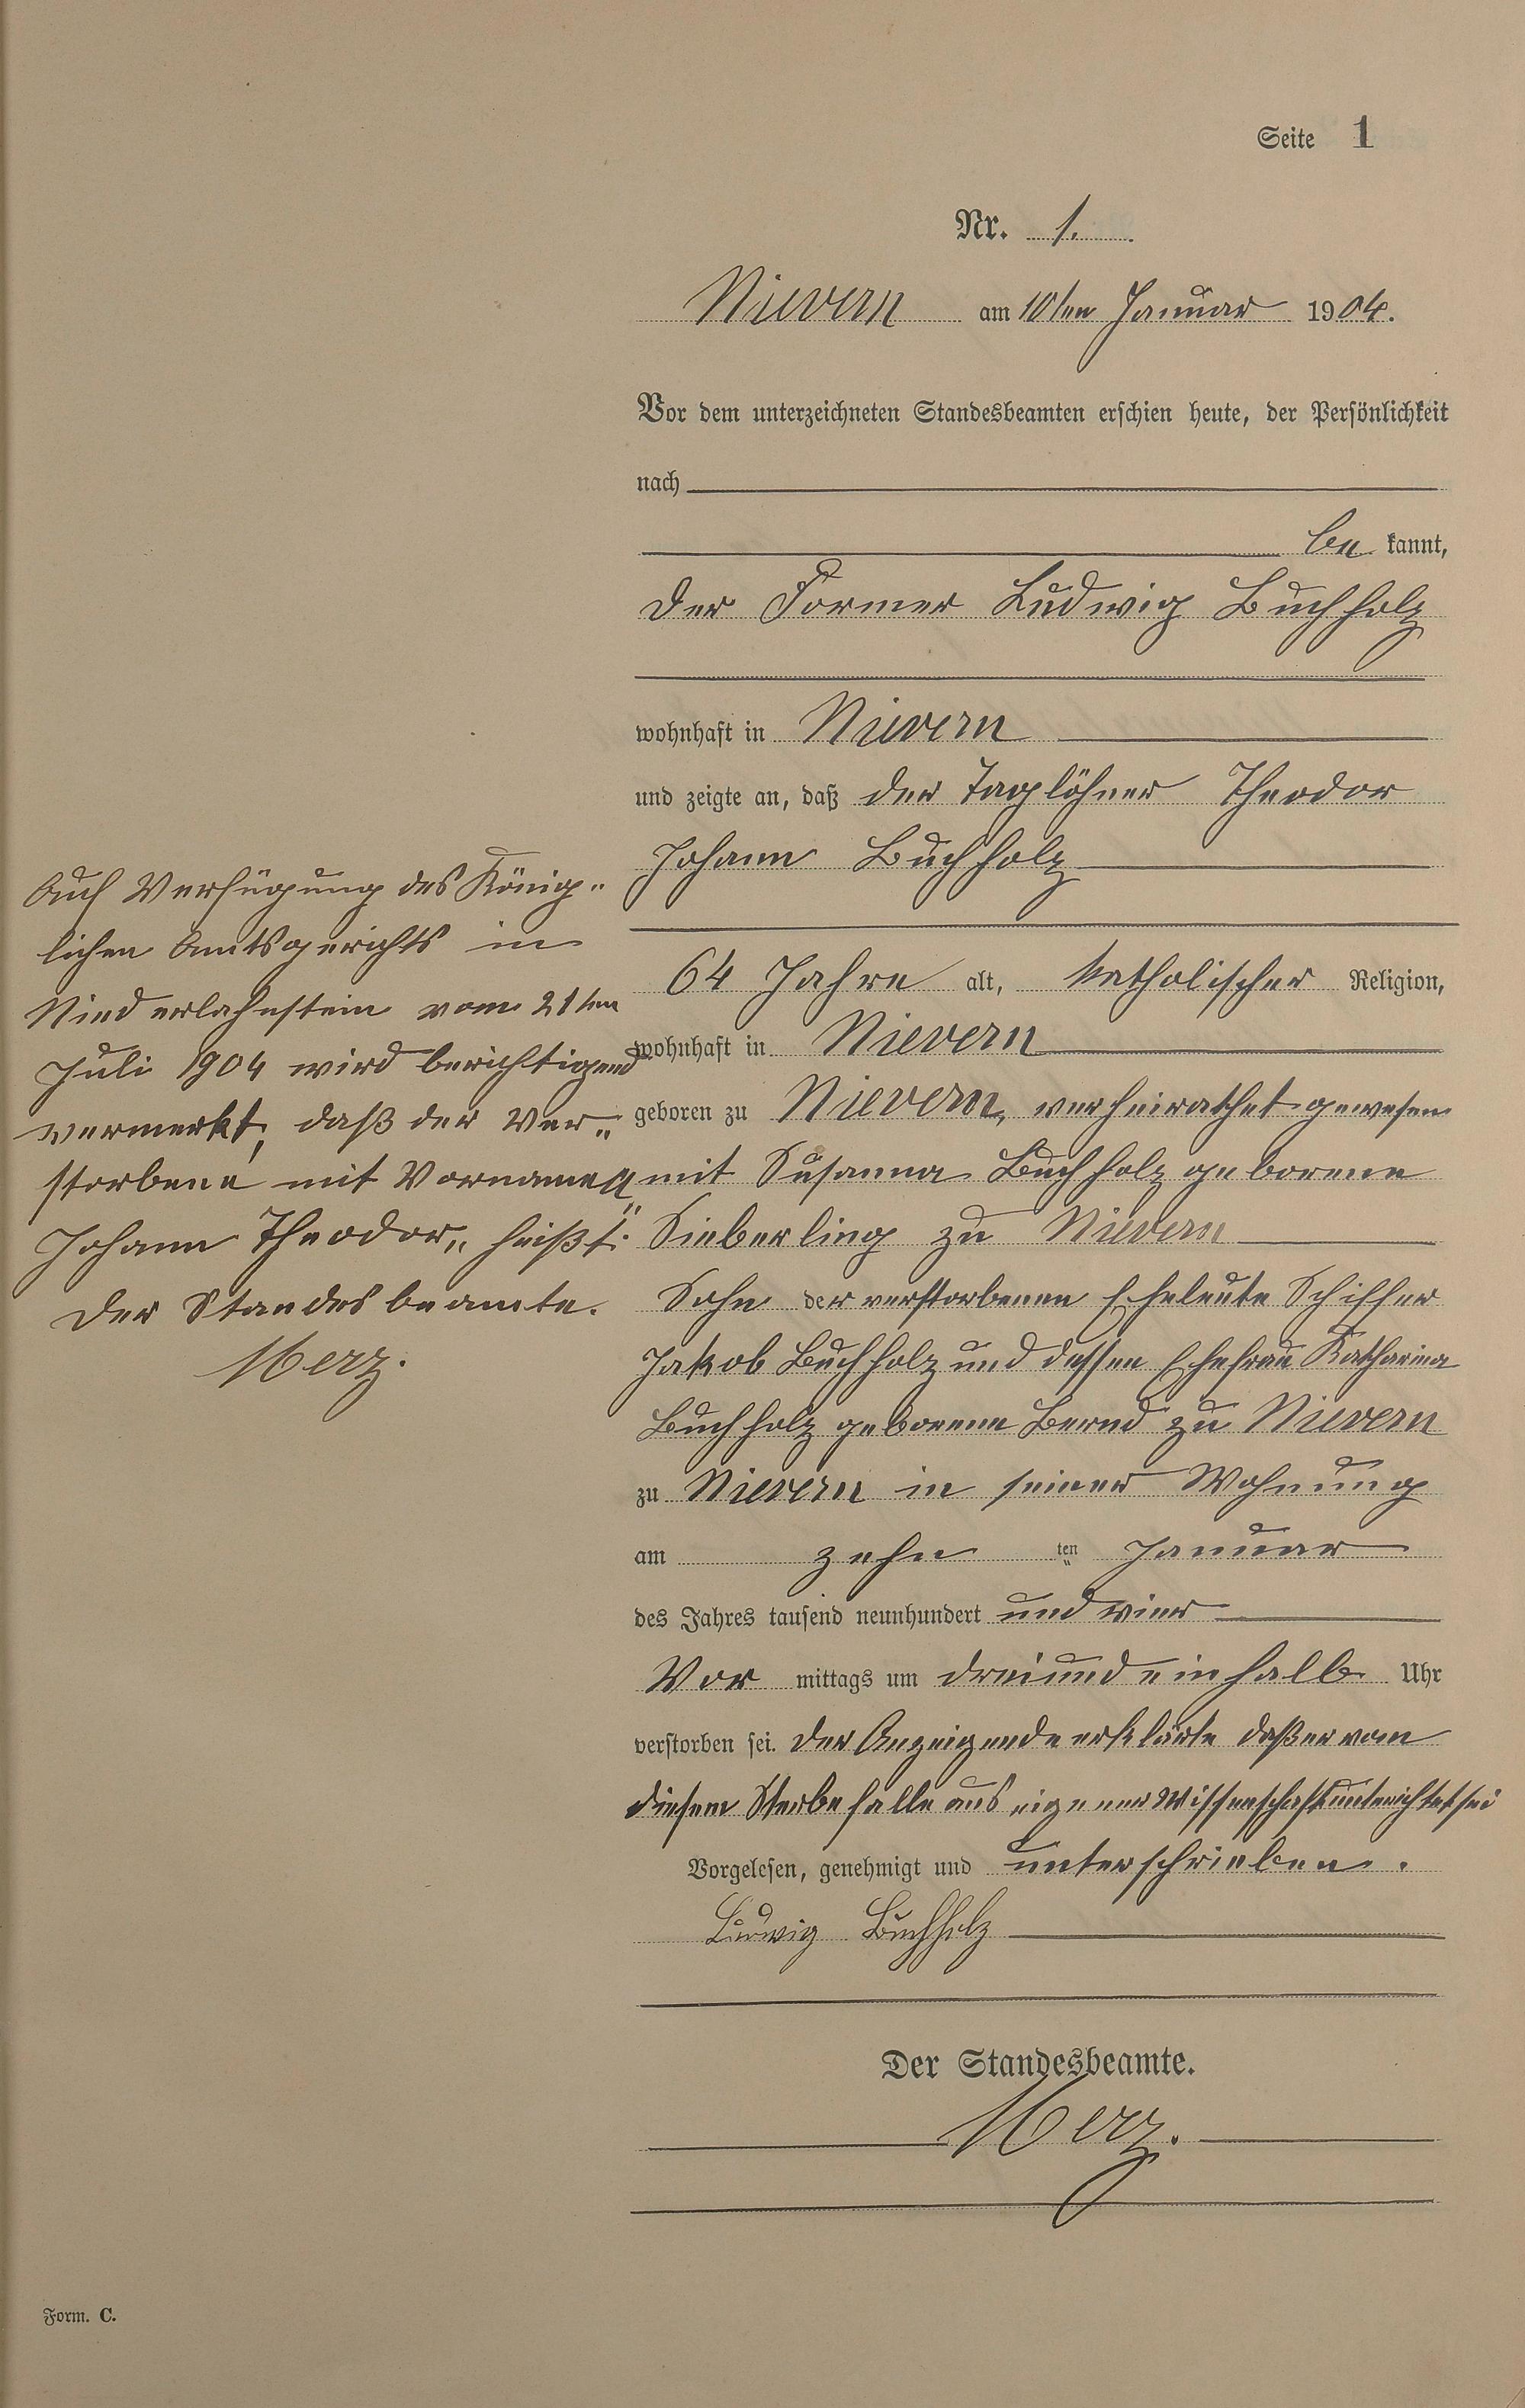 Seite 1
Nr. 1.
Nievern am 10ten Januar 1904.
Vor dem unterzeichneten Standesbeamten erschien heute, der Persönlichkeit
nach
be kannt,
der Former Ludwig Buchholz
wohnhaft in Nievern
und zeigte an, daß der Taglöhner Theodor
Johann Buchholz
64 Jahre alt, katholischer Religion,
wohnhaft in Nievern
geboren zu Nievern, verheirathet gewesen
mit Susanna Buchholz geborene
Sieberling zu Nievern
Sohn der verstorbenen Eheleute Schiffer
Jakob Buchholz und dessen Ehefrau Katharina
Buchholz geborene Bernd zu Nievern
zu Nievern in seiner Wohnung
am zehn ten Januar
des Jahres tausend neunhundert und vier
Vor mittags um dreiundeinhalb Uhr
verstorben sei. Der Anzeigende erklärte daß er vom
diesem Sterbefalle aus eigener Wissenschaft unterichtet sei
Vorgelesen, genehmigt und unterschrieben.
Ludwig Buchholz
Der Standesbeamte.
Merz.
Auf Verfügung des König-
lichen Amtsgerichts in
Niederlahnstein vom 21ten
Juli 1904 wird berichtigend
vermerkt, daß der Ver-
storbene mit Vornamen
"Johann Theodor" heißt.
Der Standesbeamte.
Merz.
Form. C.